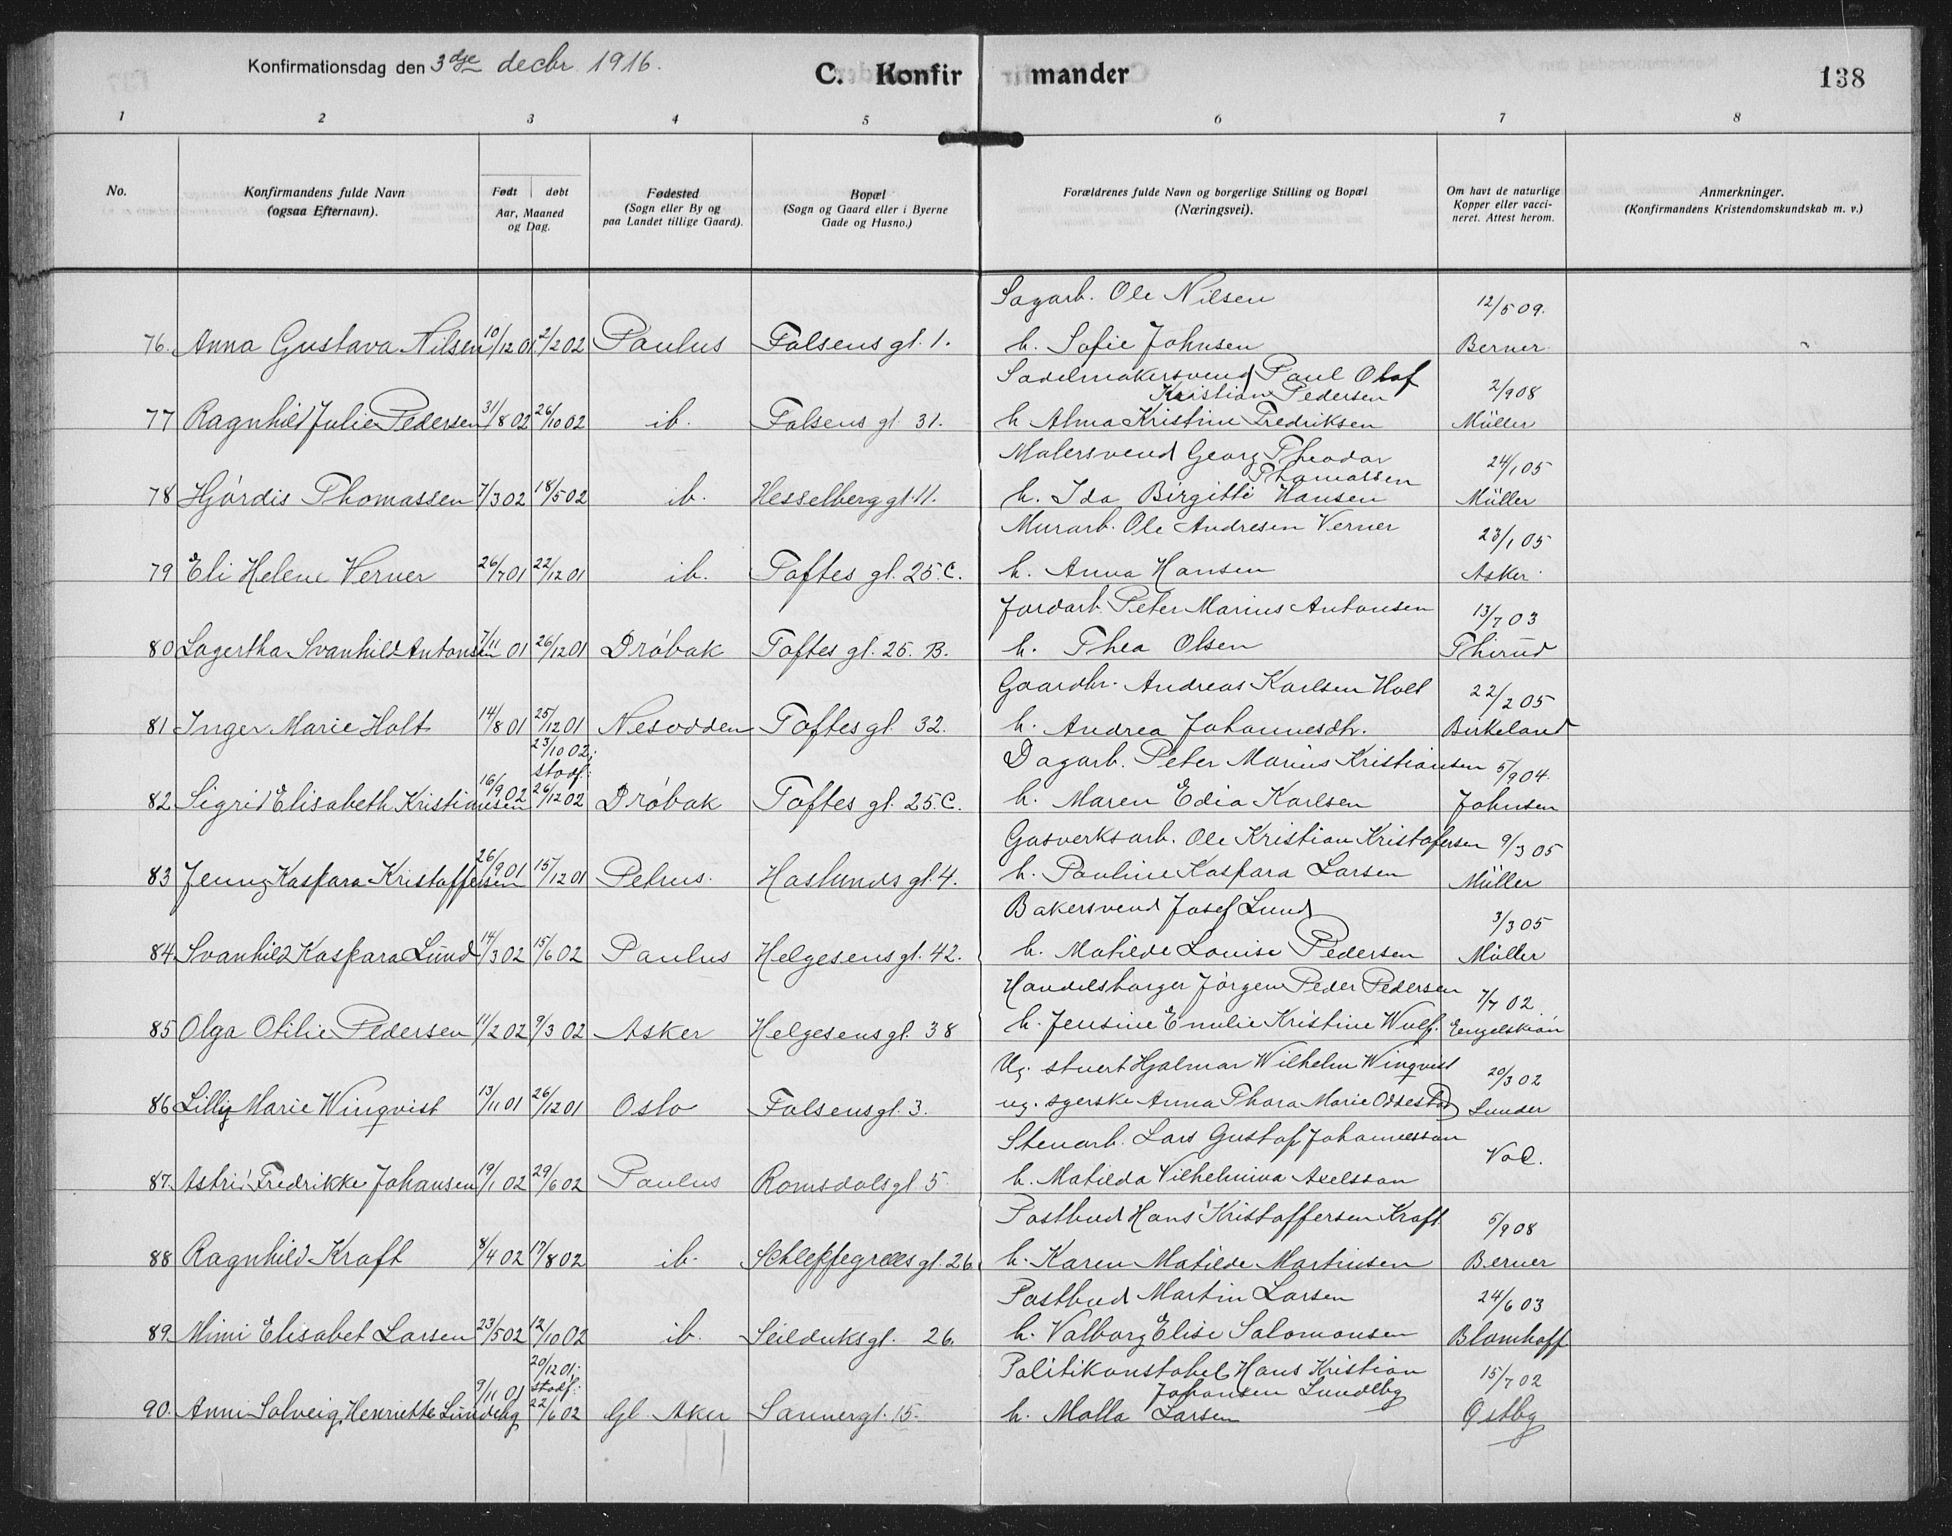 Konfirmationsdag den 3dje decbr. 1916.
C. Konfirmander
138
1 2 3 4 5 6 7 8
No.
Konfirmandens fulde Navn
(ogsaa Efternavn).
Født døbt
Aar, Maaned
og Dag.
Fødested
(Sogn eller By og
paa Landet tillige Gaard).
Bopæl
(Sogn og Gaard eller i Byerne
Gade og Husno.)
Forældrenes fulde Navn og borgerlige Stilling og Bopæl
(Næringsvei).
Om havt de naturlige
Kopper eller vacci-
neret. Attest herom.
Anmerkninger.
(Konfirmandens Kristendomskundskab m. v.)
Sagarb. Ole Nilsen 12/5 09.
76. Anna Gustava Nilsen 10/12 01 2/2 02 Paulus Falsens gt. 1. h. Sofie Johnsen Berner
Sadelmakersvend Paul Olaf
Kristian Pedersen 2/9 08
77 Ragnhild Julie Pedersen 31/8 02 26/10 02 ib. Falsens gt. 31. h. Alma Kristine Fredriksen Müller
Malersvend Georg Theodor
Thomassen 24/1 05
78 Hjördis Thomassen 7/3 02 18/5 02 ib. Hesselberg gt. 11. h. Ida Birgitte Hansen Müller
Murarb. Ole Andresen Verner 23/1 05
79 Eli Helene Verner 26/7 01 22/12 01 ib. Toftes gt. 25. C. h. Anna Hansen Asker
Jordarb. Peter Marius Antonsen 13/7 03
80 Lagertha Svanhild Antonsen 7/11 01 26/12 01 Dröbak Toftes gt. 25. B. h. Thea Olsen Thirud
Gaardbr. Andreas Karlsen Holt 22/2 05
81 Inger Marie Holt 14/8 01 25/12 01 Nesodden Toftes gt. 32. h. Andrea Johannesdtr. Birkeland
23/10 02;
stadf: Dagarb. Peter Marius Kristiansen 5/9 04.
82 Sigrid Elisabeth Kristiansen 16/9 02 26/12 02 Dröbak Toftes gt. 25. C. h. Maren Edia Karlsen Johnsen
Gasverksarb. Ole Kristian Kristofersen 9/3 05
83 Jenny Kaspara Kristoffersen 26/9 01 15/12 01 Petrus. Haslunds gt. 4. h. Pauline Kaspara Larsen Müller
Bakersvend Josef Lund 3/3 05
84 Svanhild Kaspara Lund 14/3 02 15/6 02 Paulus Helgesens gt. 42. h. Matilde Louise Pedersen Müller
Handelsborger Jörgen Peder Pedersen 7/7 02.
85 Olga Otilie Pedersen 11/2 02 9/3 02 Asker Helgesens gt. 38 h. Jensine Emilie Kristine Wulf. Engelskiön
Ug. stuert Hjalmar Wilhelm Winqvist 20/3 02
86 Lilly Marie Winqvist 13/11 01 26/12 01 Oslo Falsens gt. 3. ug. syerske Anna Thora Marie Oddestad Lunder
Stenarb. Lars Gustaf Johannesson
87. Astrid Fredrikke Johansen 19/1 02 29/6 02 Paulus Romsdals gt. 5 h. Matilda Vilhelmina Axelsson Vac.
Postbud Hans Kristoffersen Kraft 5/9 08
88 Ragnhild Kraft 8/4 02 17/8 02 ib. Schleppegrells gt. 26. h. Karen Matilde Martinsen Berner
Postbud Martin Larsen 24/6 03
89. Mimi Elisabet Larsen 23/5 02 12/10 02 ib. Seilduksgt. 26. h. Valborg Elise Salomonsen Blomhoff
20/12 01; Politikonstabel Hans Kristian
stadf: Johansen Lundbg 15/7 02
90. Anna Solveig Henriette Lundbg 9/11 01 22/6 02 Gl. Aker Sannergt. 15. h. Malla Larsen Østbg